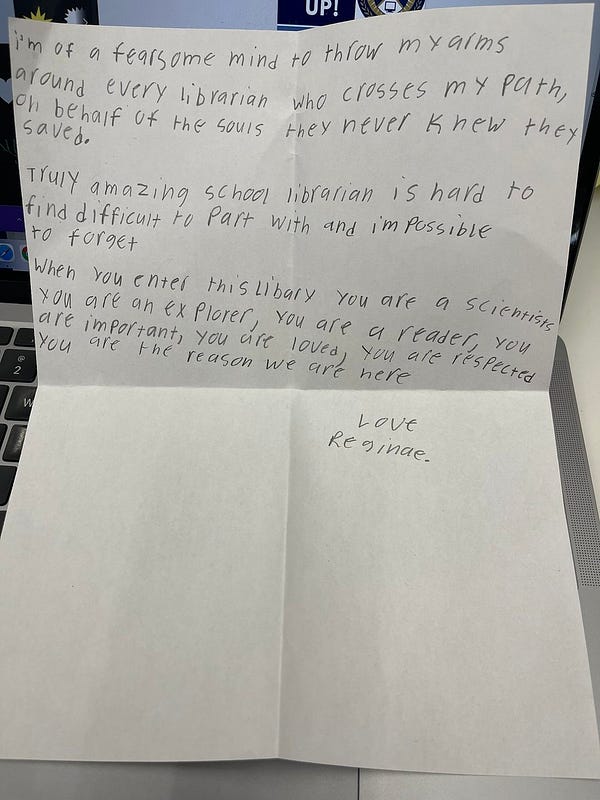 UP!
i'm of a fearsome mind to throw my arms
around every librarian who crosses my path,
on behalf of the souls they never knew they
saved.
Truly amazing school librarian is hard to
find difficult to part with and impossible
to forget
When you enter this libary you are a scientists
you are an explorer, you are a reader, you
are important, you are loved, you are respected
you are the reason we are here
Love
Reginae.
@
2
W